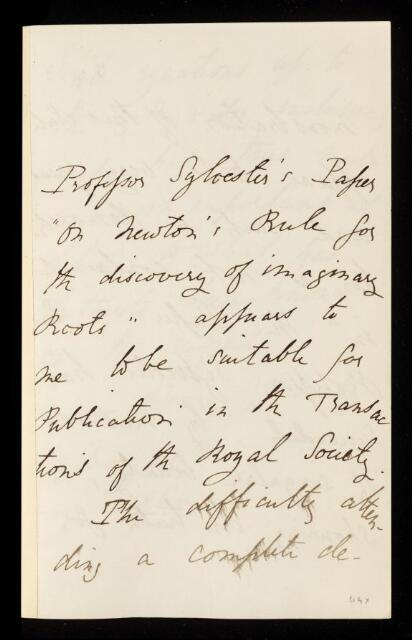 Professor Sylvester's Paper
"On Newton's Rule for
the discovery of imaginary
Roots" appears to
me to be suitable for
Publication in the Transac
tions of the Royal Society.
The difficulty atten-
ding a complete de-